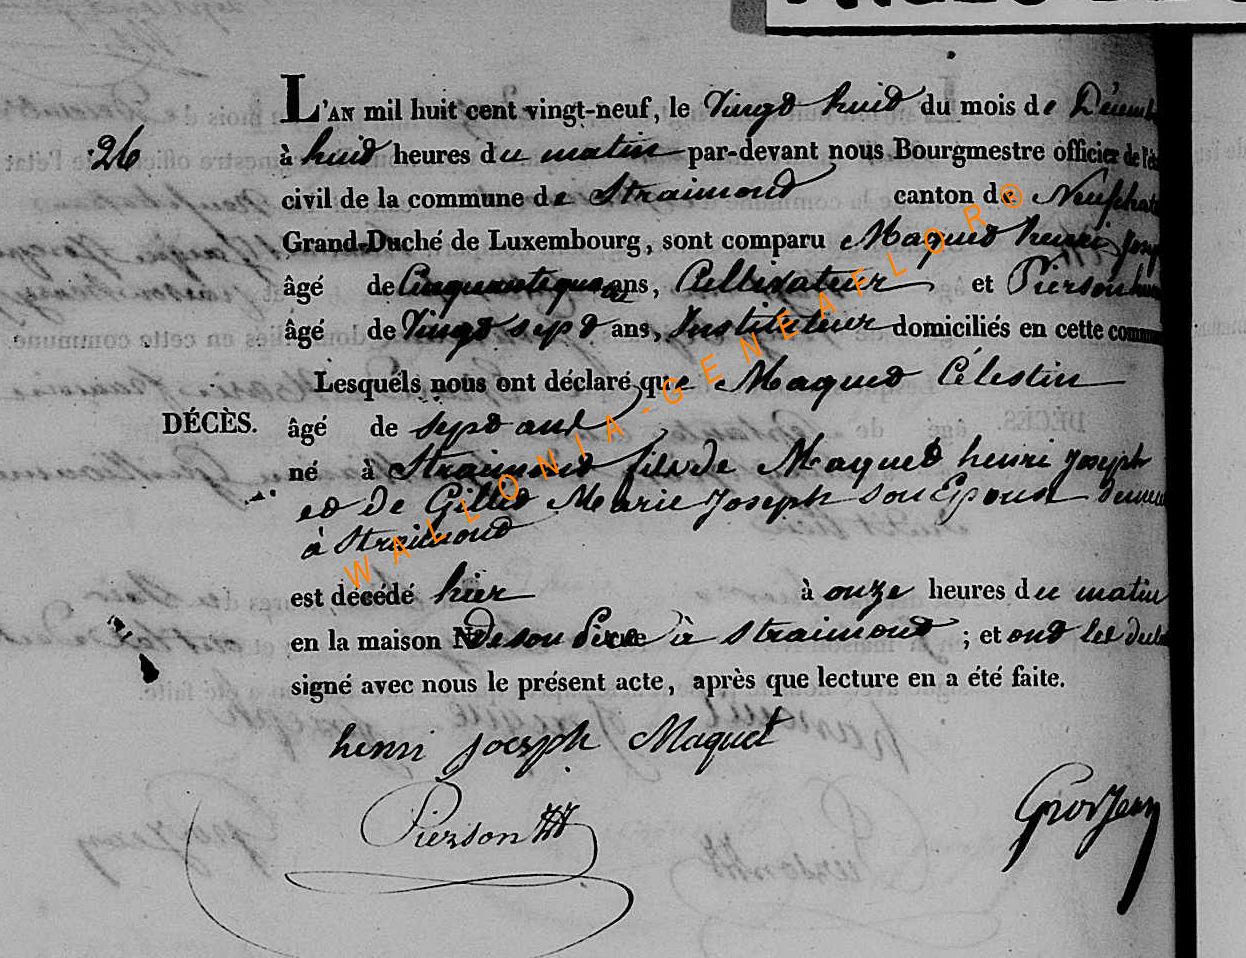 L'AN mil huit cent vingt-neuf, le Vingt huit du mois de Décemb
26
à huit heures du matin par-devant nous Bourgmestre officier de l'é
civil de la commune de Straimont canton de Neufchat
Grand-Duché de Luxembourg, sont comparu Maquet henri Josep
âgé de Cinquante quatre ans, Cultivateur et Pierson henri
âgé de Vingt sept ans, Instituteur domiciliés en cette commun
Lesquels nous ont déclaré que Maquet Célestin
DÉCÈS.
âgé de sept ans
né à Straimont fils de Maquet henri Joseph
et de Gillet Marie Joseph son Epouse
à Straimont
est décédé hier à onze heures du matin
en la maison N de son Père à Straimont ; et ont les
signé avec nous le présent acte, après que lecture en a été faite.
henri Joesph Maquet
Pierson
GrosJean
WALLONIA-GENEAFLOR®